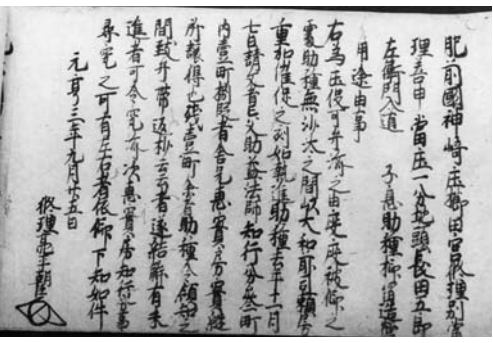 肥前國神崎庄櫛田宮修理別當
申當庄一分地頭長田五郎
左衛門入道 子息助種抑留造營
用途由事
右為庄役可弁濟之由度々被仰之
處助種無沙汰之間以大和 頼房
重加催促之刻如執進助種去年十一月
七日請文者亡父助益法師知行分参町
内壹町捌段者舎兄惠實房實継
所譲得也残壹町余者助種令領知之
間致弁帯返抄云々者遂結解有未
進者可令究濟次惠實房知行分事
尋究之可有左右者依仰下知如件
元亨三年九月廿五日
修理亮平朝臣